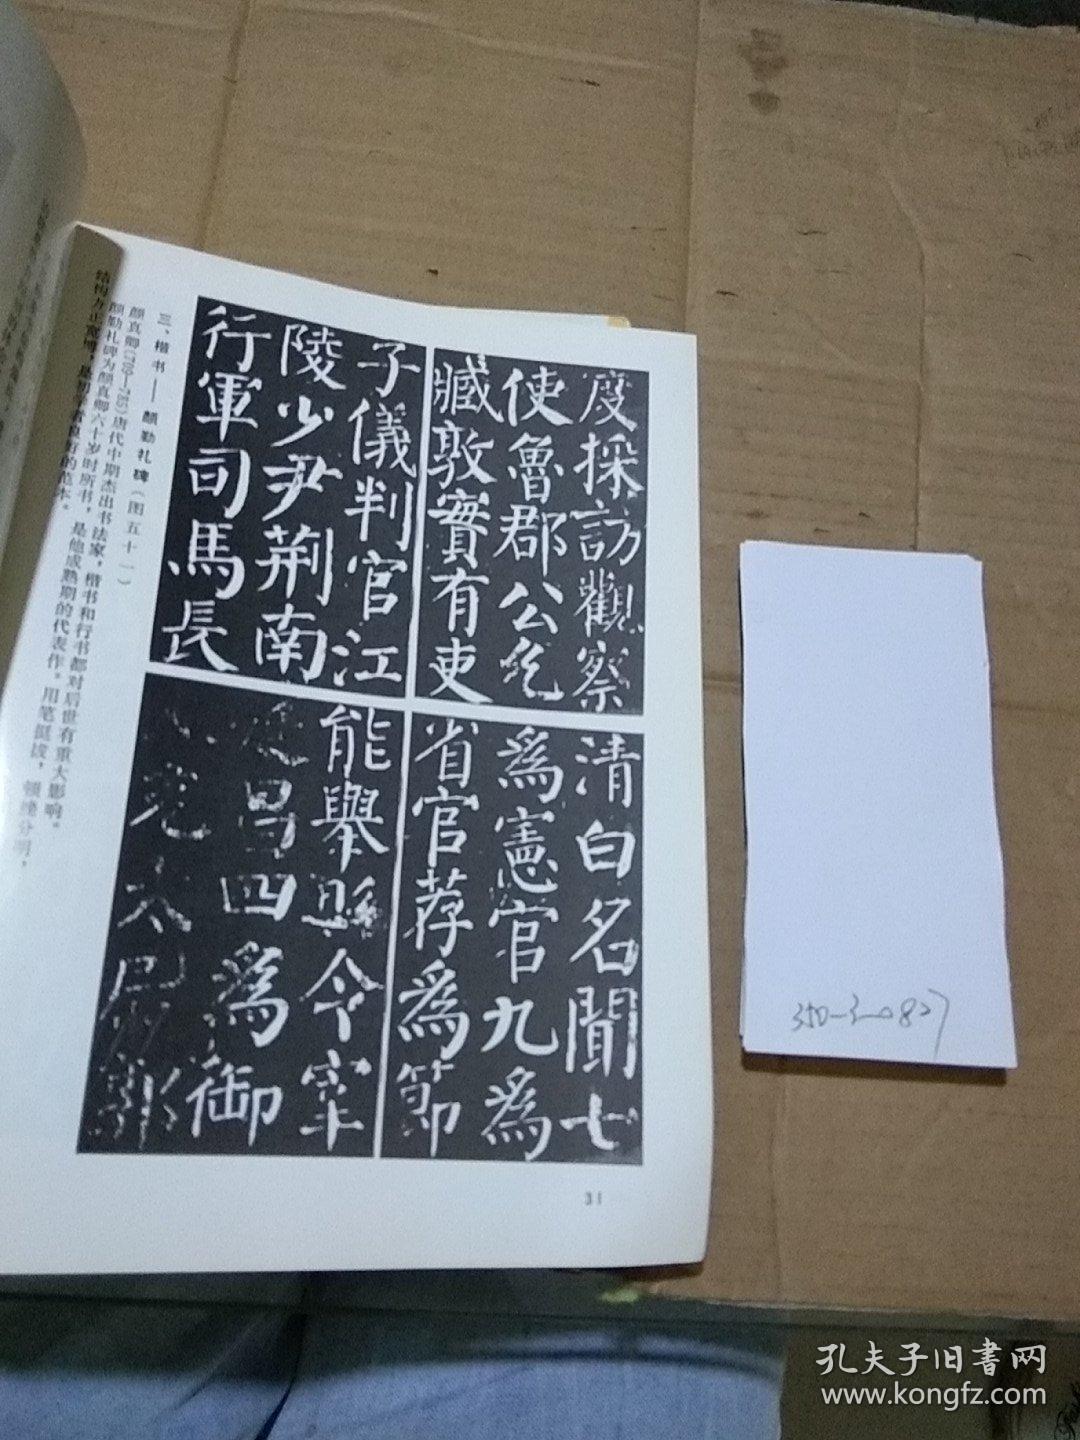 三、楷书——颜勤礼碑（图五十一）
颜真卿（709—785）唐代中期杰出书法家，楷书和行书都对后世有重大影响。
颜勤礼碑为颜真卿六十岁时所书，是他成熟期的代表作。用笔挺拔，顿挫分明，
结构方正宽博，是初学者良好的范本。
度採訪觀察
使魯郡公乞
臧敦實有吏
子儀判官江
陵少尹荆南
行軍司馬長
清白名聞七
為憲官九為
省官荐為節
能舉縣令宰
延昌四為御
太尉郭
31
350-3-0827
孔夫子旧書网
www.kongfz.com